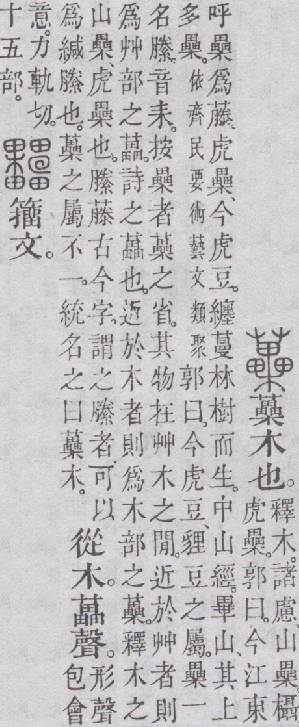 蘽木也。
釋木。諸慮、山櫐。欇
虎櫐。郭曰。今江東
呼櫐爲藤、虎櫐、今虎豆。纏蔓林樹而生。中山經。畢山、其上
多櫐。依齊民要術藝文類聚郭曰。今虎豆、貍豆之屬。櫐一
名縢。音耒。按櫐者蘽之省。其物在艸木之閒。近於艸者則
爲艸部之藟。詩之藟也。近於木者則爲木部之蘽。釋木之
山櫐虎櫐也。縢藤古今字。謂之縢者、可以
爲緘縢也。蘽之屬不一。統名之曰蘽木。
從木。藟聲。
形聲
包會
意。力軌切。
十五部。
籒文。